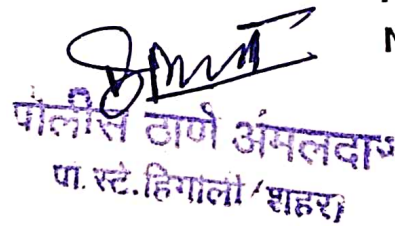 पोलीस ठाणे अंमलदार
पो. स्टे. हिंगोली शहर